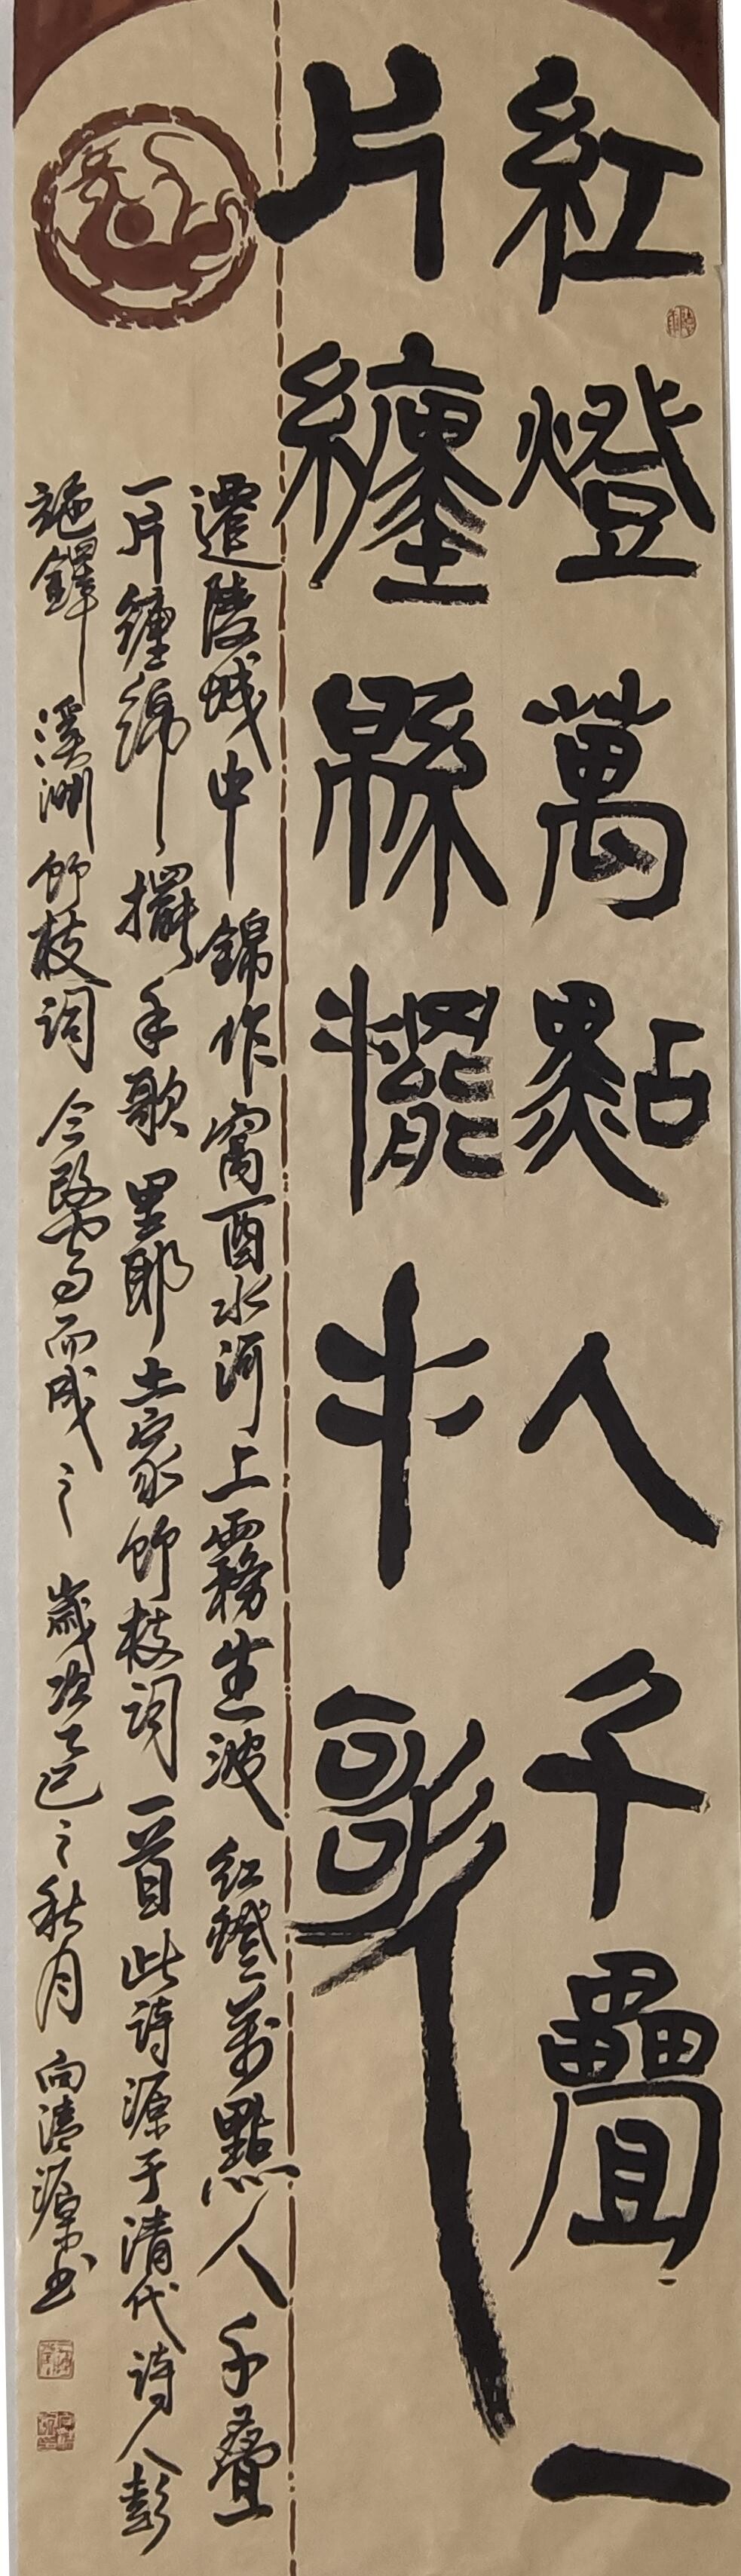 紅燈萬點人千疊一
片纏緜擺手歌
遷陵城中錦作窩酉水河上霧生波紅燈萬點人千疊
一片纏綿擺手歌里耶土家竹枝詞一首此詩源于清代詩人彭
施鐸溪洲竹枝詞今改寫而成之歲次乙巳之秋月向清源書